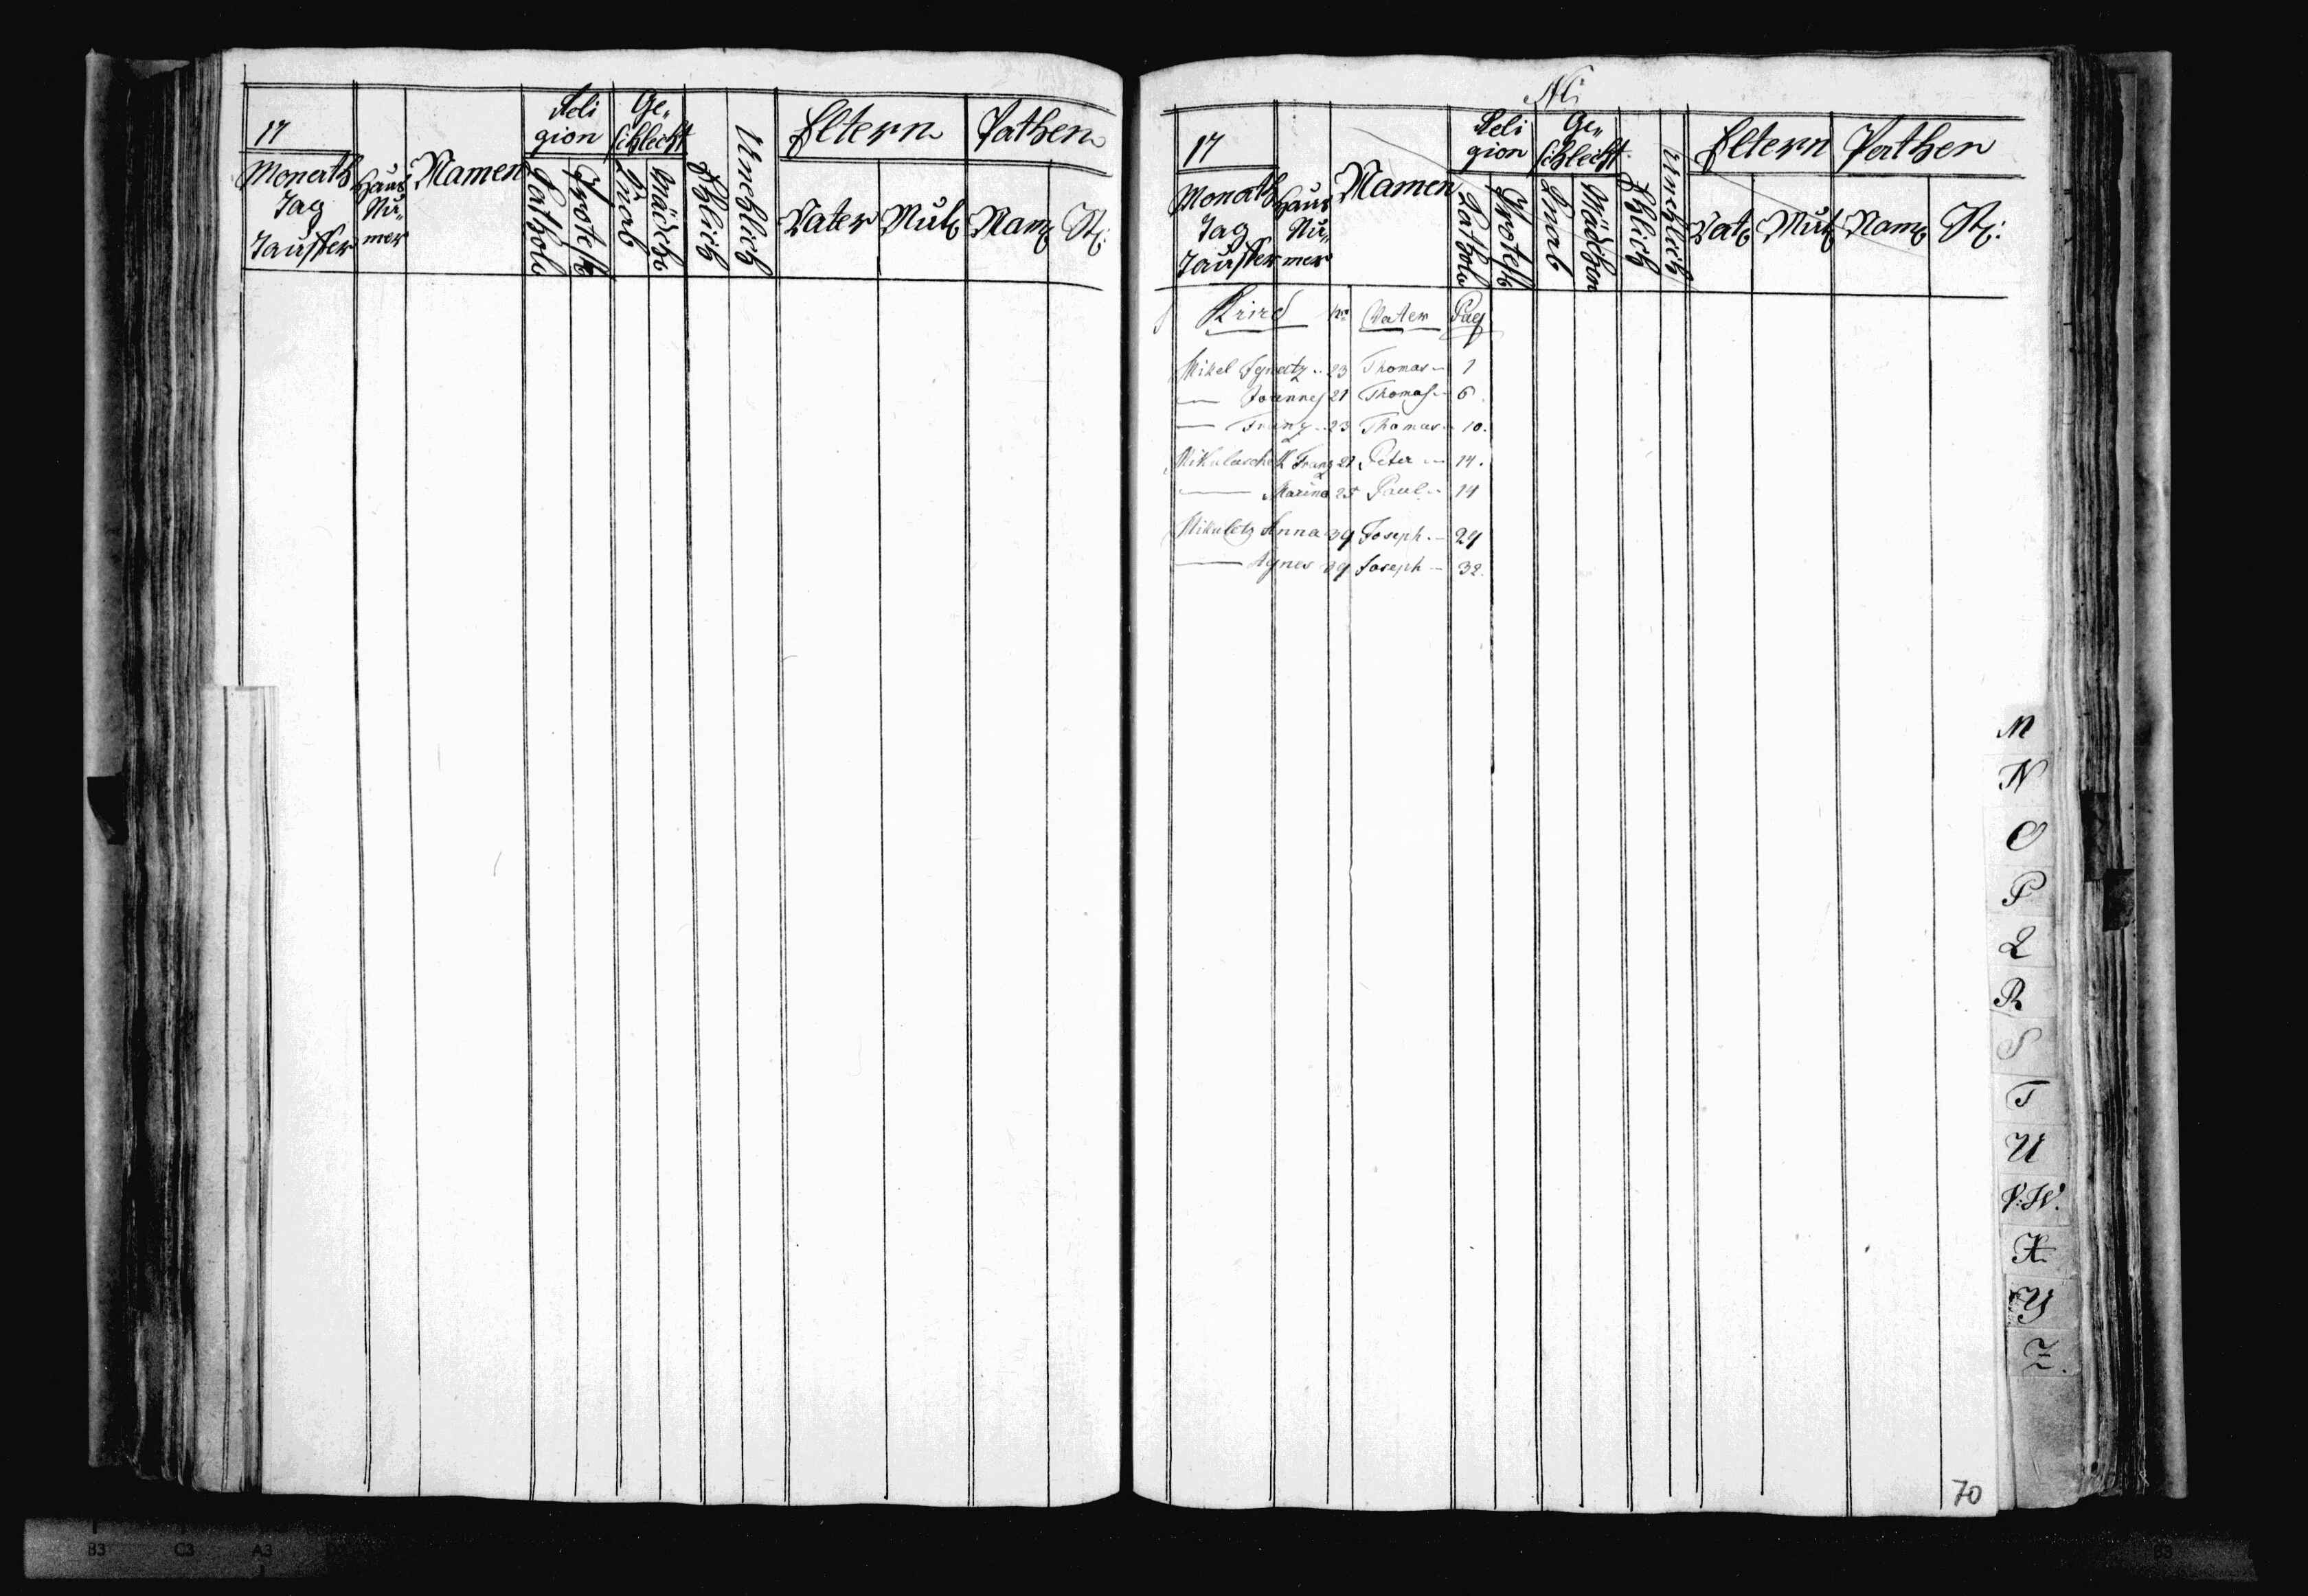 17
Monath
Tag
Tauffer
Haus
Nu„
mer
Namen
Reli
gion
Cathol:
Protest:
Ge„
schlecht
Knab
Mädch:
Ehlich
Unehlich
Eltern
Vater
Mut:
Pathen
Nam:
St:
17
Monath
Tag
Tauffer
Haus
Nu„
mer
Namen
Reli
gion
Cathol:
Protest:
Ge„
schlecht
Knab
Mädchen
Ehlich
Unehlich
Eltern
Vat:
Mut:
Pathen
Nam:
St:
Kind Nro Vater Pag
Mikel Ignatz .. 23 Thomas – 1
— Joannes 21 Thomas – 6
— Franz .. 23 Thomas – 10.
Mikulaschek Franz 21 Peter – 14.
— Marina 25 Paul – 14
Mikuletz Anna 39 Joseph. – 24
— Agnes 39 Joseph – 32.
M
N
O
P
Q
R
S
T
U
V:W.
X
Y
Z.
70
B3 C3 A3